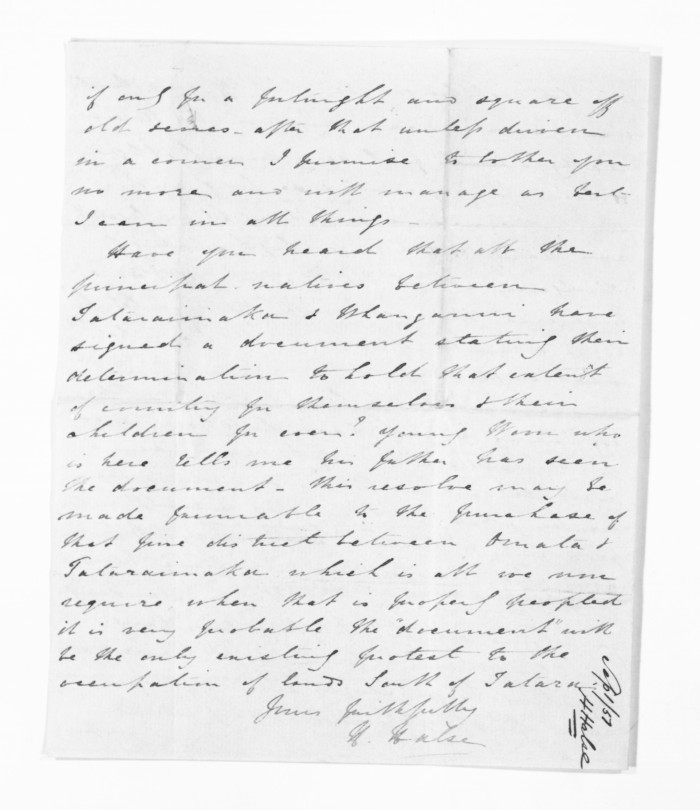 if only for a fortnight and square off
old scores - after that unless driven
in a corner I promise to bother you
no more and will manage as best
I can in all things -
Have you heard that all the
principal natives between
Tataraimaka & Whanganui have
signed a document stating their
determination to hold that extent
of country for themselves & their
children for ever? Young Hom who
is here tells me his father has seen
the document - this resolve may be
made favourable to the purchase of
that fine district between Omata &
Tataraimaka which is all we now
require, when that is properly peopled
it is very probable the "document" will
be the only existing protest to the
occupation of lands South of Tatara:
Yours faithfully
H. Halse
H Halse